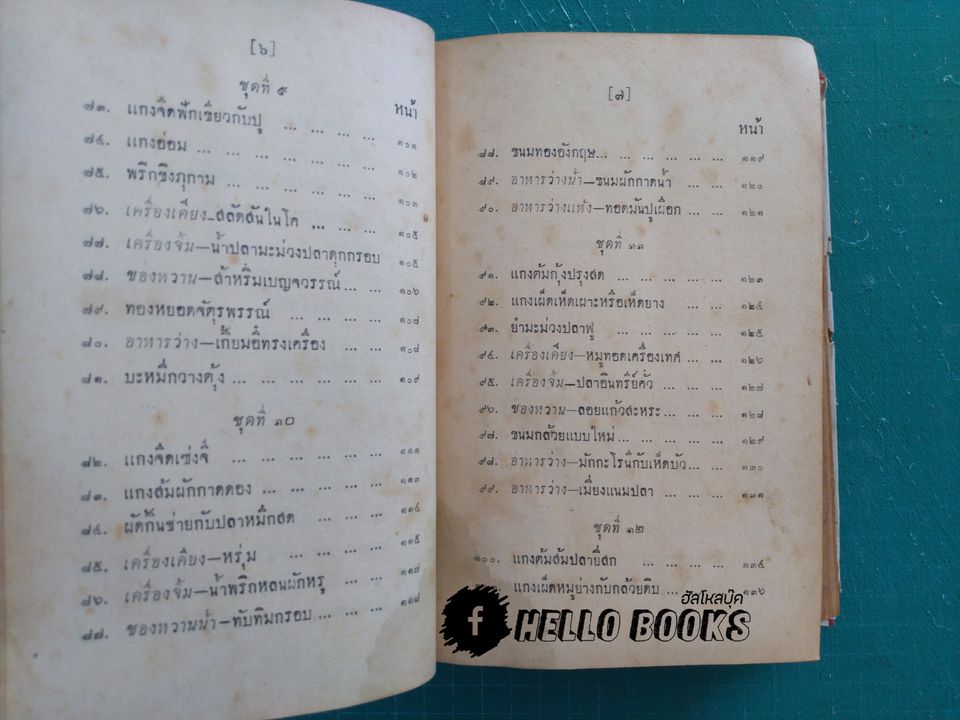 [๖]
ชุดที่ ๙
หน้า
๗๓. แกงจืดฟักเขียวกับปู ... ... ... ... ๑๐๑
๗๔. แกงอ่อม ... ... ... ... ... ... ๑๐๒
๗๕. พริกขิงภุกาม ... ... ... ... ... ๑๐๓
๗๖. เครื่องเคียง—สลัดสันในโค ... ... ... ๑๐๕
๗๗. เครื่องจิ้ม—น้ำปลามะม่วงปลาดุกกรอบ ๑๐๕
๗๘. ของหวาน—ส้าหริ่มเบญจวรรณ์ ... ... ๑๐๖
๗๙. ทองหยอดจัตุรพรรณ์ ... ... ... ... ๑๐๘
๘๐. อาหารว่าง—เกี้ยมอี๋ทรงเครื่อง ... ... ๑๐๘
๘๑. บะหมี่กวางตุ้ง ... ... ... ... ... ๑๐๙
ชุดที่ ๑๐
๘๒. แกงจืดเซ่งจี๊ ... ... ... ... ... ๑๑๑
๘๓. แกงส้มผักกาดดอง ... ... ... ... ๑๑๓
๘๔. ผัดกึ้นช่ายกับปลาหมึกสด ... ... ... ๑๑๔
๘๕. เครื่องเคียง—หรุ่ม ... ... ... ... ๑๑๕
๘๖. เครื่องจิ้ม—น้ำพริกหลนผักหรู ... ... ๑๑๗
๘๗. ของหวานน้ำ—ทับทิมกรอบ ... ... ... ๑๑๘
[๗]
หน้า
๘๘. ขนมทองอังกฤษ... ... ... ... ... ... ๑๑๙
๘๙. อาหารว่างน้ำ—ขนมผักกาดน้ำ ... ... ๑๒๐
๙๐. อาหารว่างแห้ง—ทอดมันปูเผือก ... ... ๑๒๑
ชุดที่ ๑๑
๙๑. แกงต้มกุ้งปรุงสด ... ... ... ... ... ๑๒๓
๙๒. แกงเผ็ดเห็ดเผาะหรือเห็ดยาง ... ... ... ๑๒๔
๙๓. ยำมะม่วงปลาฟู ... ... ... ... ... ๑๒๕
๙๔. เครื่องเคียง—หมูทอดเครื่องเทศ ... ... ๑๒๖
๙๕. เครื่องจิ้ม—ปลาอินทรีย์คั่ว ... ... ... ๑๒๗
๙๖. ของหวาน—ลอยแก้วสะหระ ... ... ... ๑๒๘
๙๗. ขนมกล้วยแบบใหม่ ... ... ... ... ... ๑๒๙
๙๘. อาหารว่าง—มักกะโรนีกับเห็ดบัว... ... ๑๓๐
๙๙. อาหารว่าง—เมี่ยงแนมปลา ... ... ... ๑๓๑
ชุดที่ ๑๒
๑๐๐. แกงต้มส้มปลายี่สก ... ... ... ๑๓๕
แกงเผ็ดหมูย่างกับกล้วยดิบ ... ๑๓๖
ฮัลโหลบุ๊ค
f HELLO BOOKS